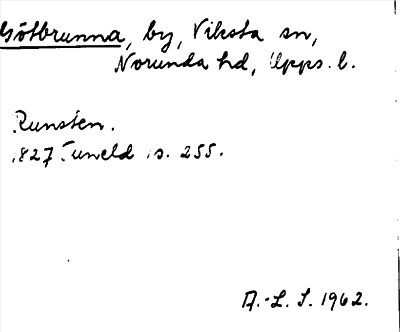 Götbrunna, by, Viksta sn,
Norunda hd, Upps. l.
Runsten.
1827 Tuneld s. 255.
A.-L. S. 1962.